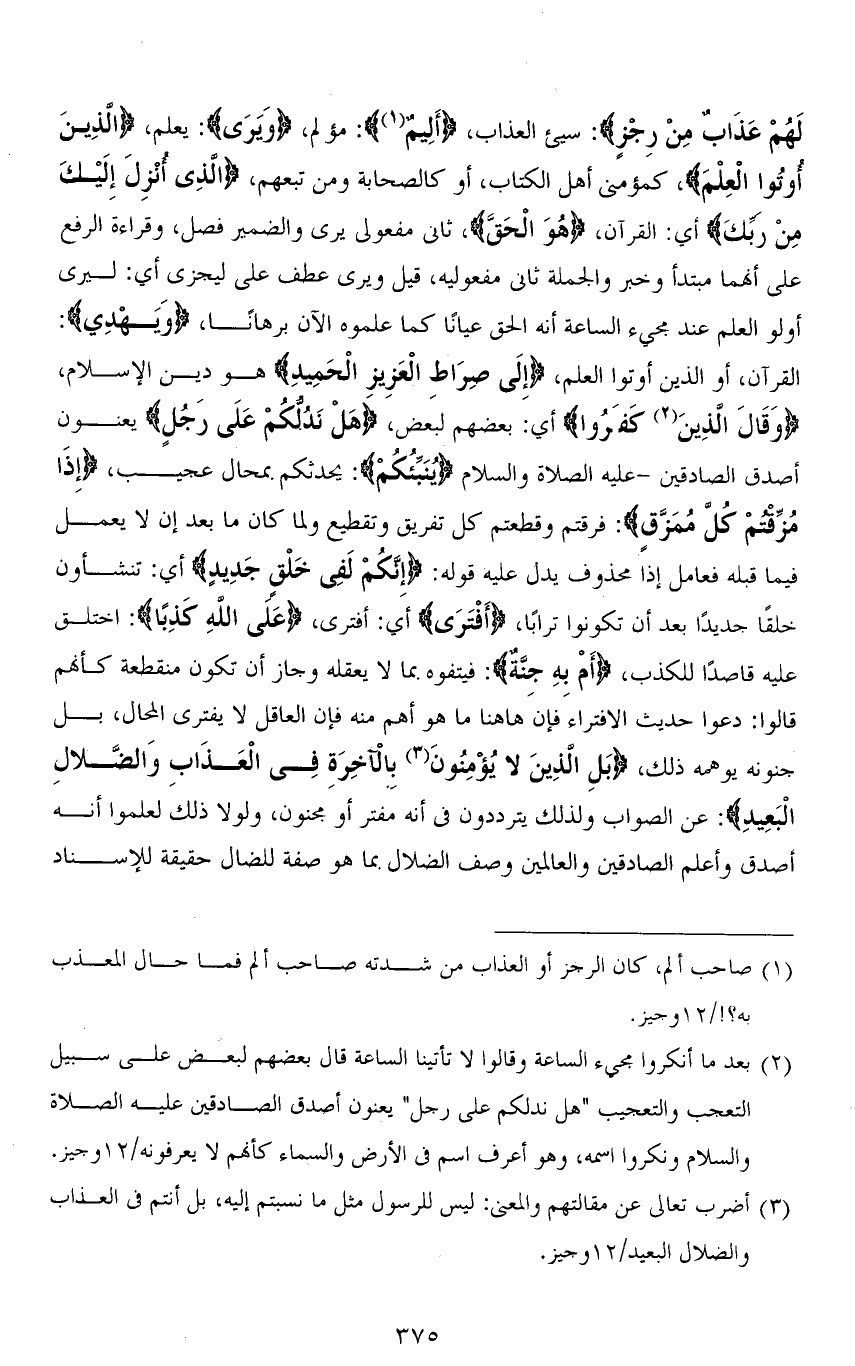 لَهُمْ عَذَابٌ مِنْ رِجْزٍ﴾: سيئ العذاب، ﴿أَلِيمٌ(١)﴾: مؤلم، ﴿وَيَرَى﴾: يعلم، ﴿الَّذِينَ
أُوتُوا الْعِلْمَ﴾، كمؤمنى أهل الكتاب، أو كالصحابة ومن تبعهم، ﴿الَّذِى أُنْزِلَ إِلَيْكَ
مِنْ رَبِّكَ﴾ أي: القرآن، ﴿هُوَ الْحَقَّ﴾، ثانى مفعولى يرى والضمير فصل، وقراءة الرفع
على أنهما مبتدأ وخبر والجملة ثانى مفعوليه، قيل ويرى عطف على ليجزى أي: لـيرى
أولو العلم عند مجيء الساعة أنه الحق عيانًا كما علموه الآن برهانًا، ﴿وَيَهْدِي﴾:
القرآن، أو الذين أوتوا العلم، ﴿إِلَى صِرَاطِ الْعَزِيزِ الْحَمِيدِ﴾ هو دين الإسلام،
﴿وَقَالَ الَّذِينَ(٢) كَفَرُوا﴾ أي: بعضهم لبعض، ﴿هَلْ نَدُلُّكُمْ عَلَى رَجُلٍ﴾ يعنون
أصدق الصادقين -عليه الصلاة والسلام ﴿يُنَبِّئُكُمْ﴾: يحدثكم بمحال عجيب، ﴿إِذَا
مُزِّقْتُمْ كُلَّ مُمَزَّقٍ﴾: فرقتم وقطعتم كل تفريق وتقطيع ولما كان ما بعد إن لا يعمل
فيما قبله فعامل إذا محذوف يدل عليه قوله: ﴿إِنَّكُمْ لَفِى خَلْقٍ جَدِيدٍ﴾ أي: تنشأون
خلقًا جديدًا بعد أن تكونوا ترابًا، ﴿أَفْتَرَى﴾ أي: أفترى، ﴿عَلَى اللَّهِ كَذِبًا﴾: اختلق
عليه قاصدًا للكذب، ﴿أَمْ بِهِ جِنَّةٌ﴾: فيتفوه بما لا يعقله وجاز أن تكون منقطعة كأنهم
قالوا: دعوا حديث الافتراء فإن هاهنا ما هو أهم منه فإن العاقل لا يفترى المحال، بل
جنونه يوهمه ذلك، ﴿بَلِ الَّذِينَ لا يُؤْمِنُونَ(٣) بِالْآخِرَةِ فِى الْعَذَابِ وَالضَّلالِ
الْبَعِيدِ﴾: عن الصواب ولذلك يترددون فى أنه مفتر أو مجنون، ولولا ذلك لعلموا أنه
أصدق وأعلم الصادقين والعالمين وصف الضلال بما هو صفة للضال حقيقة للإسناد
(١) صاحب ألم، كان الرجز أو العذاب من شدته صاحب ألم فما حال المعذب
به؟!/١٢وجيز.
(٢) بعد ما أنكروا مجيء الساعة وقالوا لا تأتينا الساعة قال بعضهم لبعض على سبيل
التعجب والتعجيب "هل ندلكم على رجل" يعنون أصدق الصادقين عليه الصلاة
والسلام ونكروا اسمه، وهو أعرف اسم فى الأرض والسماء كأنهم لا يعرفونه/١٢وجيز.
(٣) أضرب تعالى عن مقالتهم والمعنى: ليس للرسول مثل ما نسبتم إليه، بل أنتم فى العذاب
والضلال البعيد/١٢وجيز.
٣٧٥